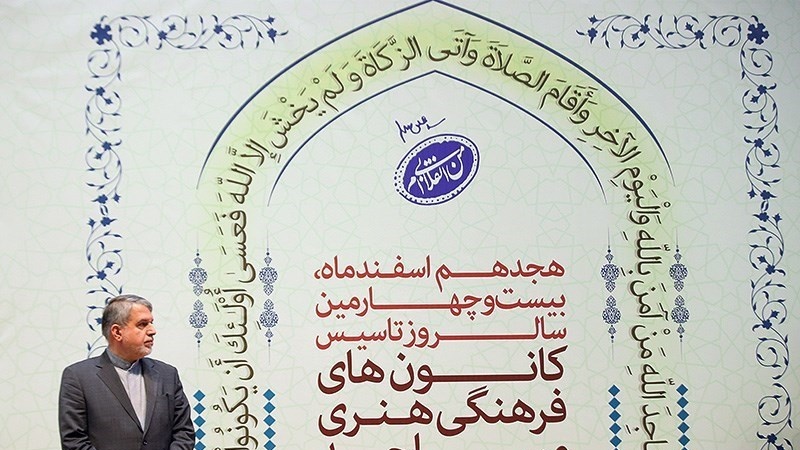 اجِدَ اللَّهِ مَنْ آمَنَ بِاللَّهِ وَالْيَوْمِ الْآخِرِ وَأَقَامَ الصَّلَاةَ وَآتَى الزَّكَاةَ وَلَمْ يَخْشَ إِلَّا اللَّهَ فَعَسَىٰ أُوْلَٰئِكَ أَن يَكُونُوا
من انقلابی‌ام
هجدهم اسفندماه،
بیست‌وچهارمین
سالروز تاسیس
کانون های
فرهنگی هنری